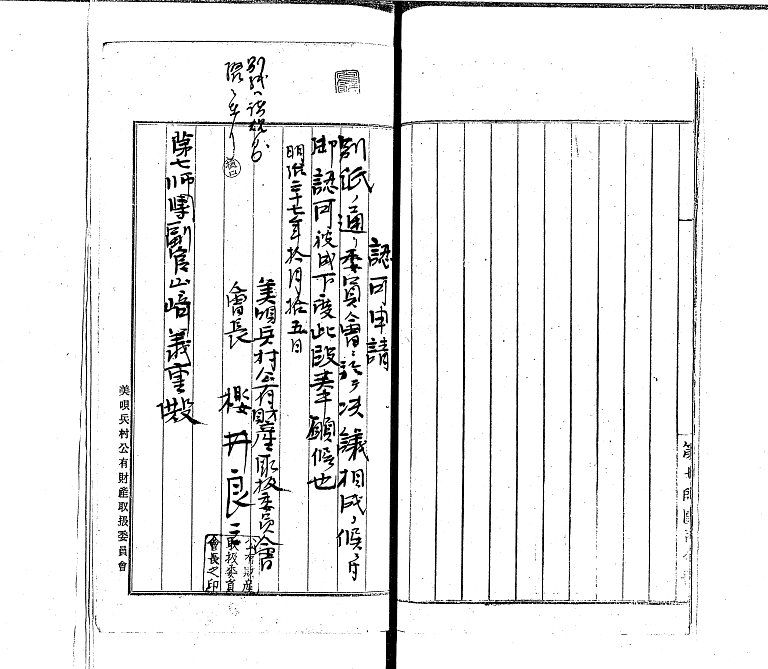 認可申請
別紙ノ通リ委員會ニ於テ決議相成リ候ニ付
御認可被成下度此段奉願候也
明治三十七年拾月拾五日
美唄兵村公有財産取扱委員會
會長 櫻井良三
公有財産
取扱委員
會長之印
第七師團副官山崎義重殿
美唄兵村公有財産取扱委員會